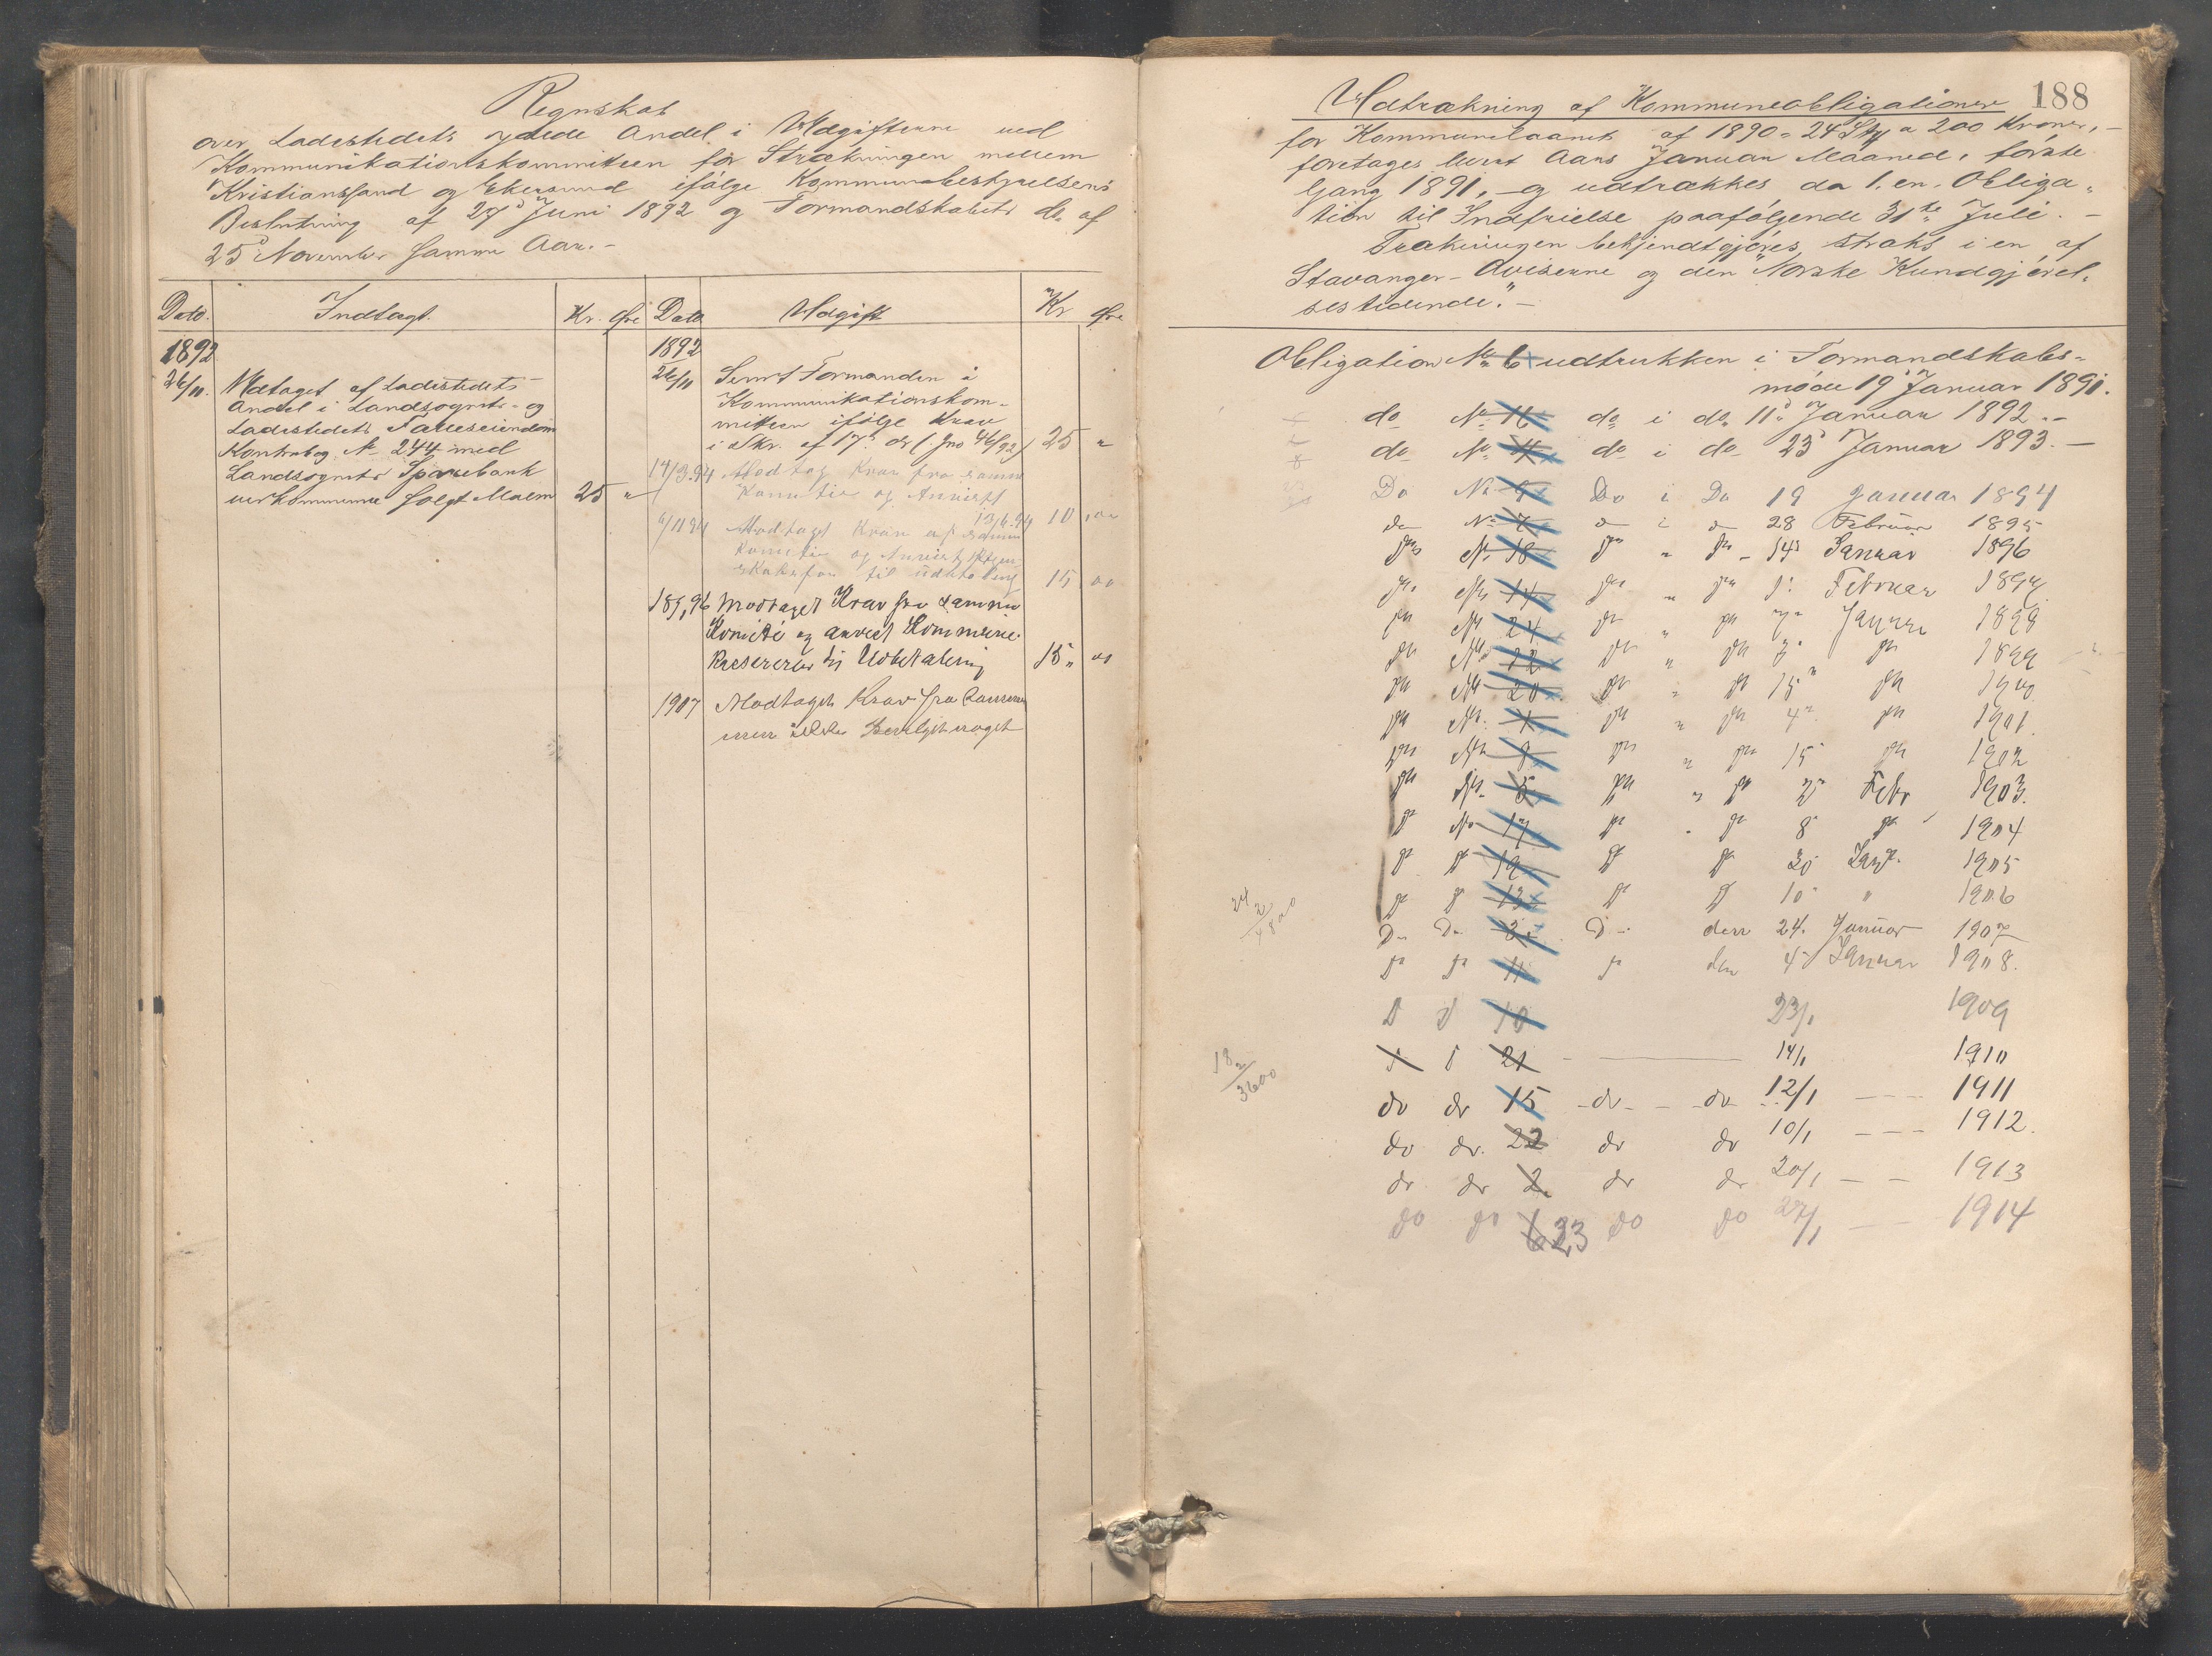 Regnskab
over Ladestedets ydede Andel i Udgifterne ved
Kommunikationskommiteen for Strækningen mellem
Kristianssand og Ekersund ifølge Kommunebestyrelsens
Beslutning af 27d Juni 1892 og Formandskabets do af
25d November samme Aar. -
Dato. Indtægt. Kr. Øre Dato Udgift Kr Øre
1892
26/11. Udtaget af Ladestedets
Andel i Landsognets- og
Ladestedets Fælleseiendom
Kontrabog No 244 med
Landsognets Sparebank
vedkommende solgt Malm 25 "
1892
26/11 Sendt Formanden i
Kommunikationskom-
miteen ifølge Krav
i Skr. af 17d ds (Jno 46/92) 25 "
14/3.94 Modtog Krav fra samme
Komitee og Anvist
13/6.94 10 ,00
6/11 94 Modtaget Krav af samme
Komitee og Anvist
til Udbetaling 15 00
Modtaget Krav fra samme
Komité og anvist Kommune
Kassereren til Udbetaling 15 " 00
1907 Modtaget Krav fra
men ikke Bevilget noget
188
Udtrækning af Kommuneobligationer
for Kommunelaanet af 1890 = 24 Stk a 200 Kroner, -
foretages hvert Aars Januar Maaned, første
Gang 1891, - og udtrækkes da 1. en. Obliga-
tion til Indfrielse paafølgende 31te Juli. -
Trækningen bekjendtgjøres straks i en af
Stavanger-Aviserne og den "Norske Kundgjørel-
sestidende". -
Obligation No 6 udtrukken i Formandskabs-
møde 19d Januar 1891.
do No 16 do i do 11d Januar 1892. -
do No 4 do i do 23d Januar 1893. -
Do No 9 Do i Do 19 Januar 1894
do No 7 do i do 28 Februar 1895
do No 18 do " do - 14d Januar 1896
do No 14 do " do 1. Februar 1897
do No 24 do " do Januar 1898
do No 12 do " do 3 do 1899
do No 20 do " do 15 do 1900
do No 1 do " do 4 do 1901.
do No 8 do " do 15 do 1902
do No 5 do " do Febr 1903.
do No 17 do " do 8 do 1904
do do 19 do do 30 Janr. 1905
do do 13 do do 10 " 1906
24
2
4800
Do Do 3 Do den 24. Januar 1907
do do 11 do den 4 Januar 1908.
D d 10 23/1 1909
21 14/1 1910
18
2
3600
do do 15 - do - - do 12/1 - - - 1911
do do. 22 do do 10/1 - - - 1912.
do do 2 do do 20/1 - - 1913
do do 23 do do 27/1 - - 1914